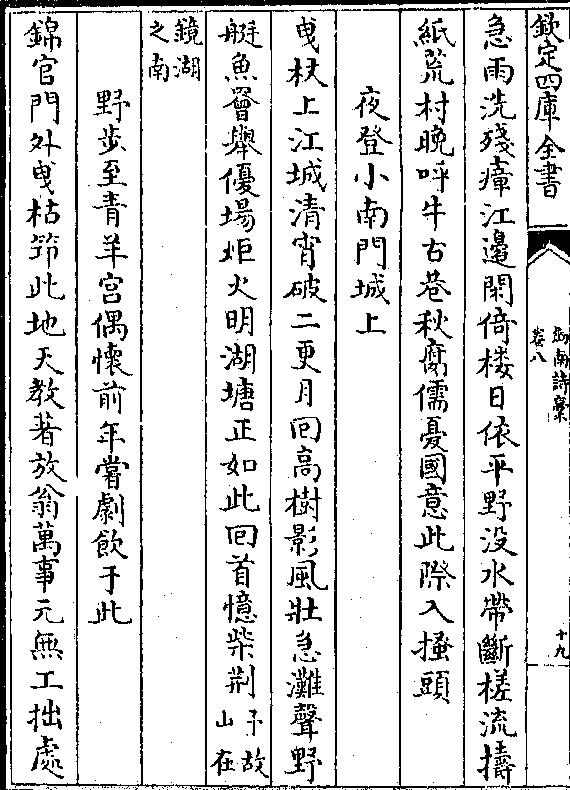 欽定四庫全書
劍南詩稾
卷八
十九
急雨洗殘瘴江邊閑倚樓日依平野没水帶斷槎流擣
紙荒村晩呼牛古巷秋腐儒憂國意此際入搔頭
夜登小南門城上
曳杖上江城清宵破二更月回高樹影風壯急灘聲野
艇魚罾舉優場炬火明湖塘正如此回首憶柴荆予故山在
鏡湖之南
野步至青羊宫偶懷前年嘗劇飲于此
錦官門外曳枯笻此地天教著放翁萬事元無工拙處